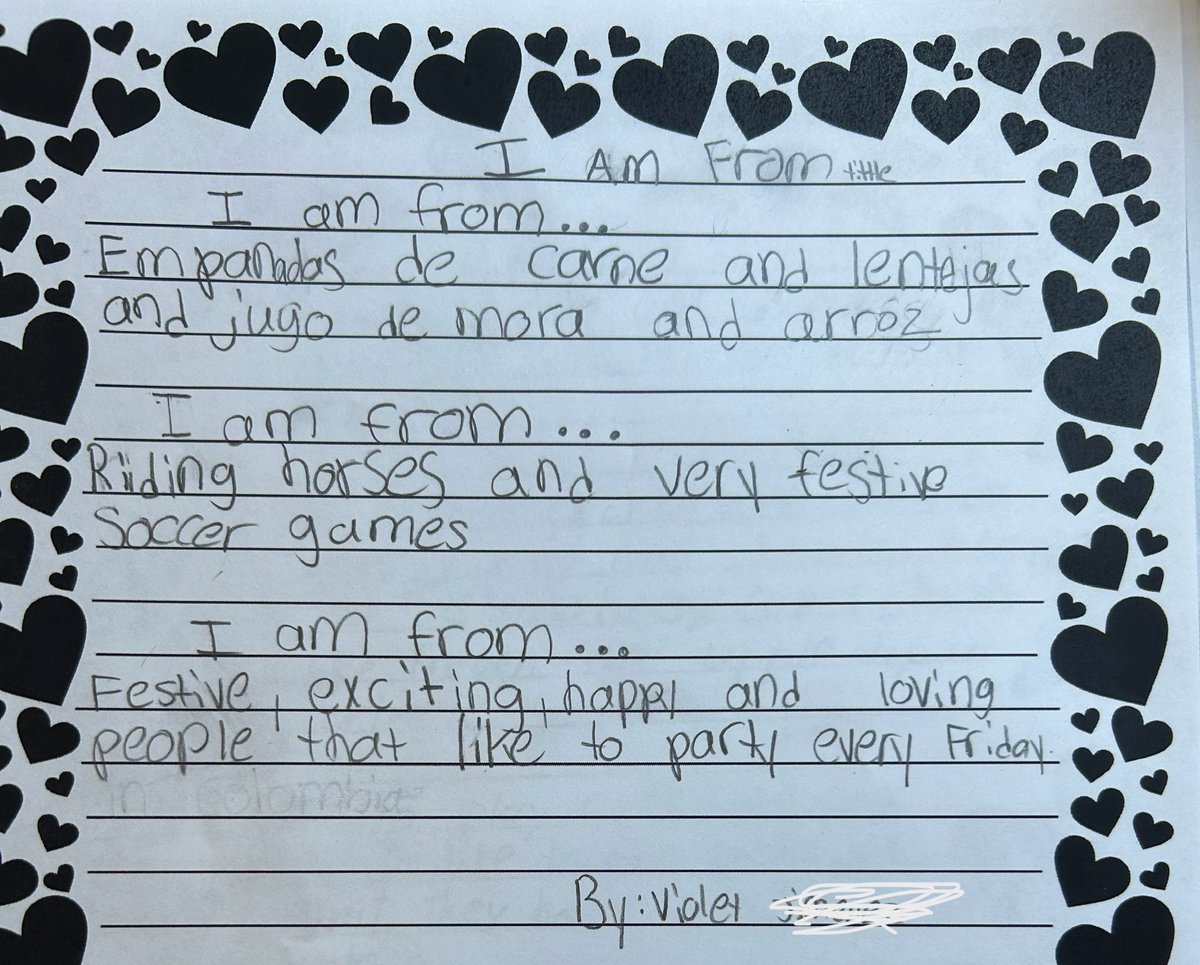 I Am From title
I am from...
Empanadas de carne and lentejas
and jugo de mora and arróz
I am from...
Riiding horses and very festive
Soccer games
I am from...
Festive, exciting, happy and loving
people that like to party every Friday.
in Colombia
By: Violet